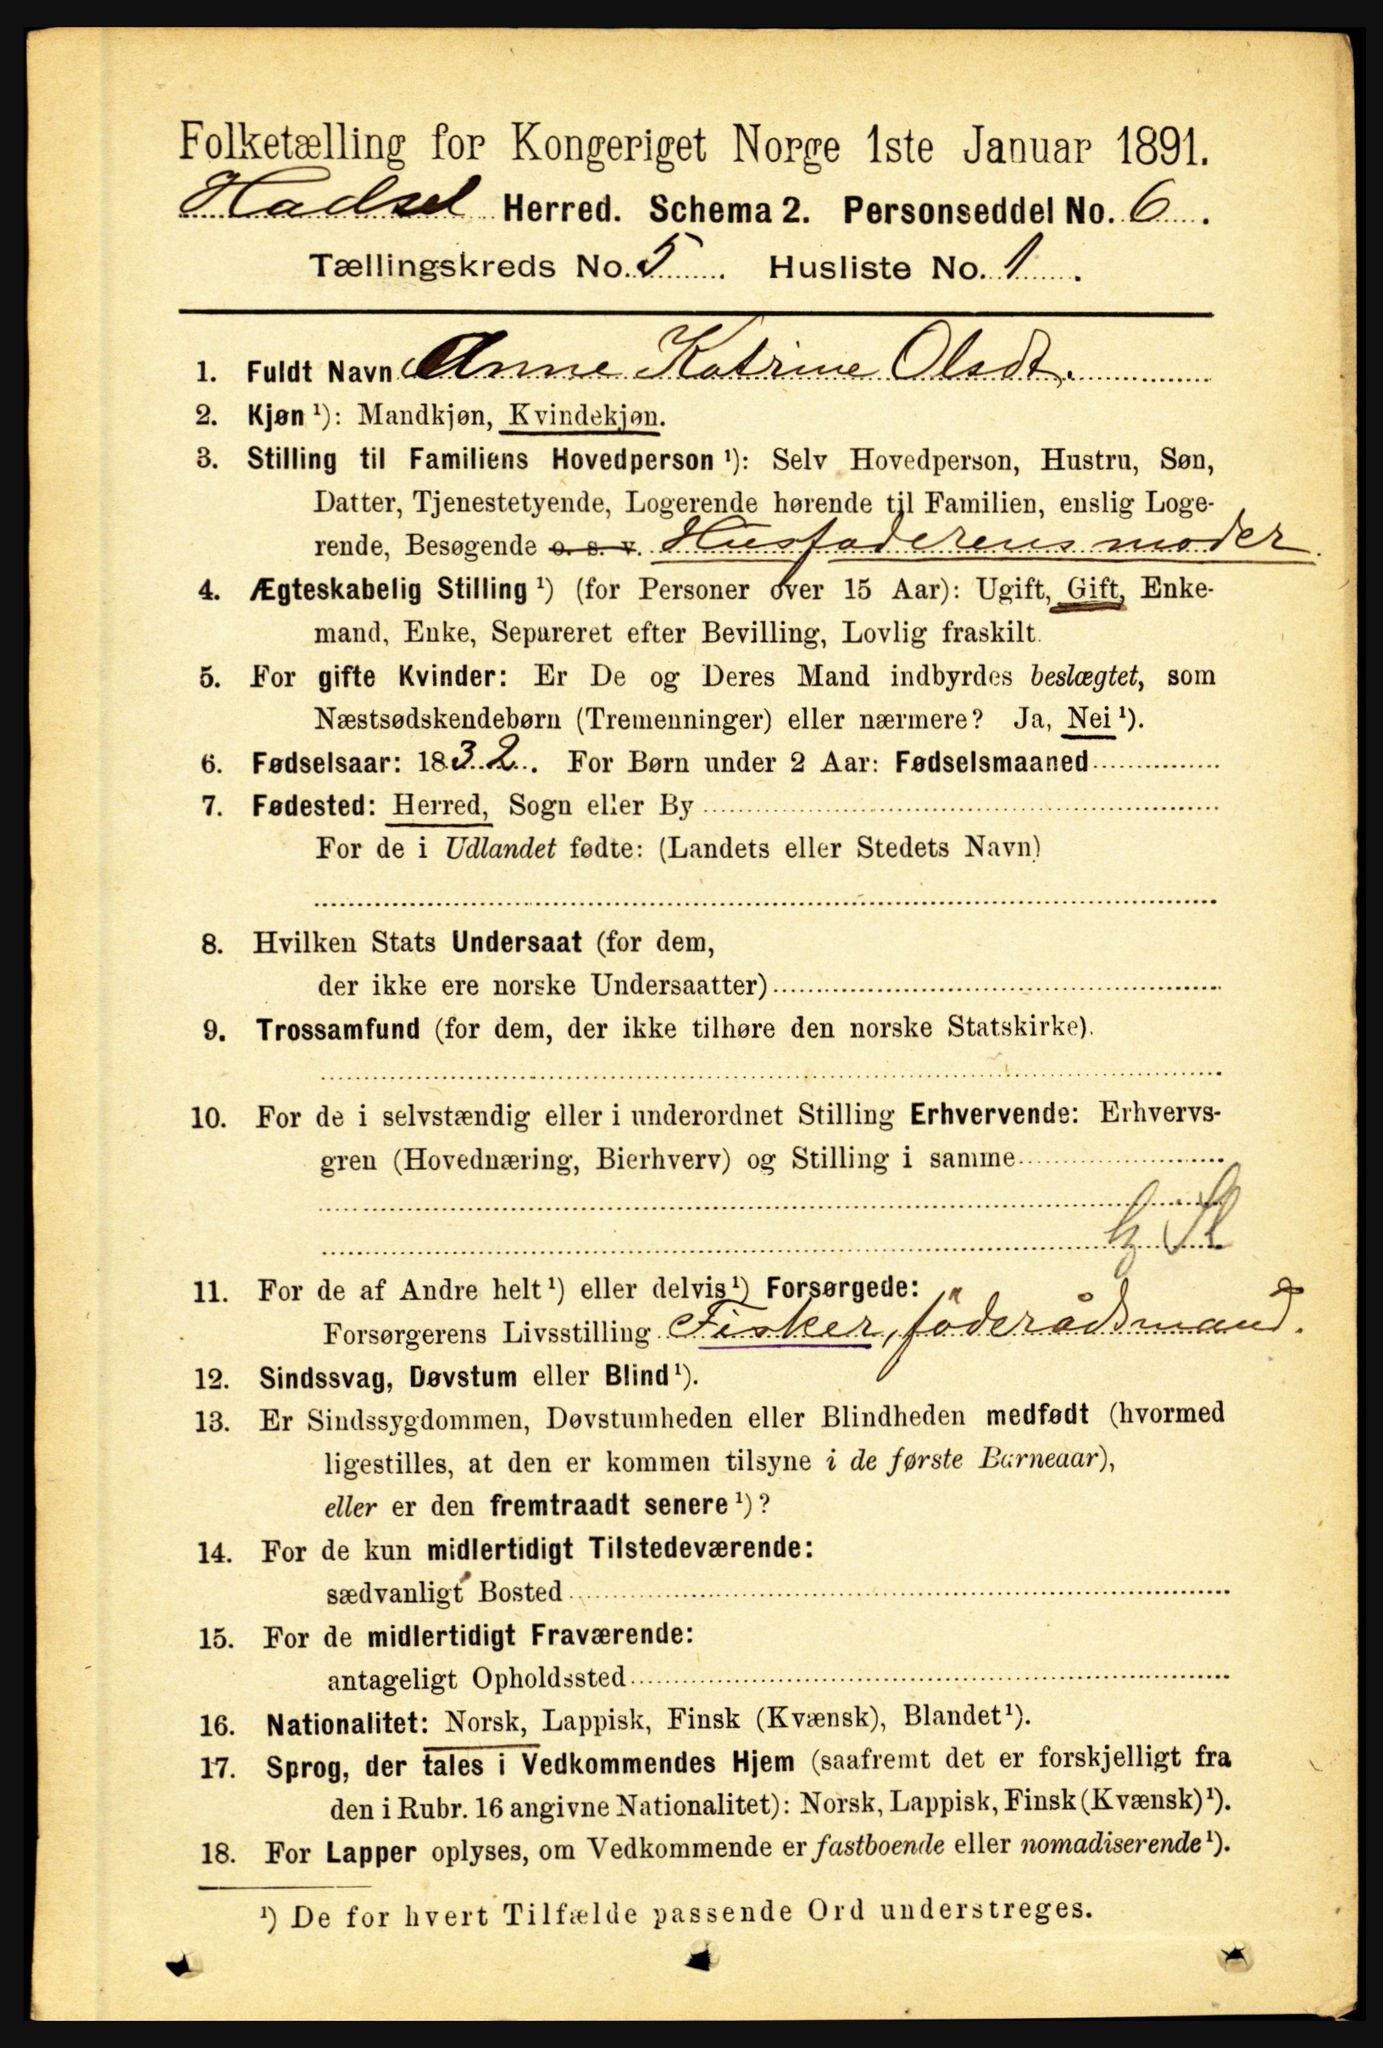 Folketælling for Kongeriget Norge 1ste Januar 1891.
Hadsel Herred. Schema 2. Personseddel No. 6.
Tællingskreds No. 5. Husliste No. 1.
1. Fuldt Navn Anne Katrine Olsdt.
2. Kjøn ¹): Mandkjøn, Kvindekjøn.
3. Stilling til Familiens Hovedperson ¹): Selv Hovedperson, Hustru, Søn,
Datter, Tjenestetyende, Logerende hørende til Familien, enslig Loge-
rende, Besøgende o. s. v. Husfaderens moder.
4. Ægteskabelig Stilling ¹) (for Personer over 15 Aar): Ugift, Gift, Enke-
mand, Enke, Separeret efter Bevilling, Lovlig fraskilt.
5. For gifte Kvinder: Er De og Deres Mand indbyrdes beslægtet, som
Næstsødskendebørn (Tremenninger) eller nærmere? Ja, Nei ¹).
6. Fødselsaar: 1832. For Børn under 2 Aar: Fødselsmaaned
7. Fødested: Herred, Sogn eller By
For de i Udlandet fødte: (Landets eller Stedets Navn)
8. Hvilken Stats Undersaat (for dem,
der ikke ere norske Undersaatter)
9. Trossamfund (for dem, der ikke tilhøre den norske Statskirke).
10. For de i selvstændig eller i underordnet Stilling Erhvervende: Erhvervs-
gren (Hovednæring, Bierhverv) og Stilling i samme
11. For de af Andre helt ¹) eller delvis ¹) Forsørgede:
Forsørgerens Livsstilling Fisker, föderådsmand.
12. Sindssvag, Døvstum eller Blind ¹).
13. Er Sindssygdommen, Døvstumheden eller Blindheden medfødt (hvormed
ligestilles, at den er kommen tilsyne i de første Barneaar),
eller er den fremtraadt senere ¹)?
14. For de kun midlertidigt Tilstedeværende:
sædvanligt Bosted
15. For de midlertidigt Fraværende:
antageligt Opholdssted
16. Nationalitet: Norsk, Lappisk, Finsk (Kvænsk), Blandet ¹).
17. Sprog, der tales i Vedkommendes Hjem (saafremt det er forskjelligt fra
den i Rubr. 16 angivne Nationalitet): Norsk, Lappisk, Finsk (Kvænsk) ¹).
18. For Lapper oplyses, om Vedkommende er fastboende eller nomadiserende ¹).
¹) De for hvert Tilfælde passende Ord understreges.